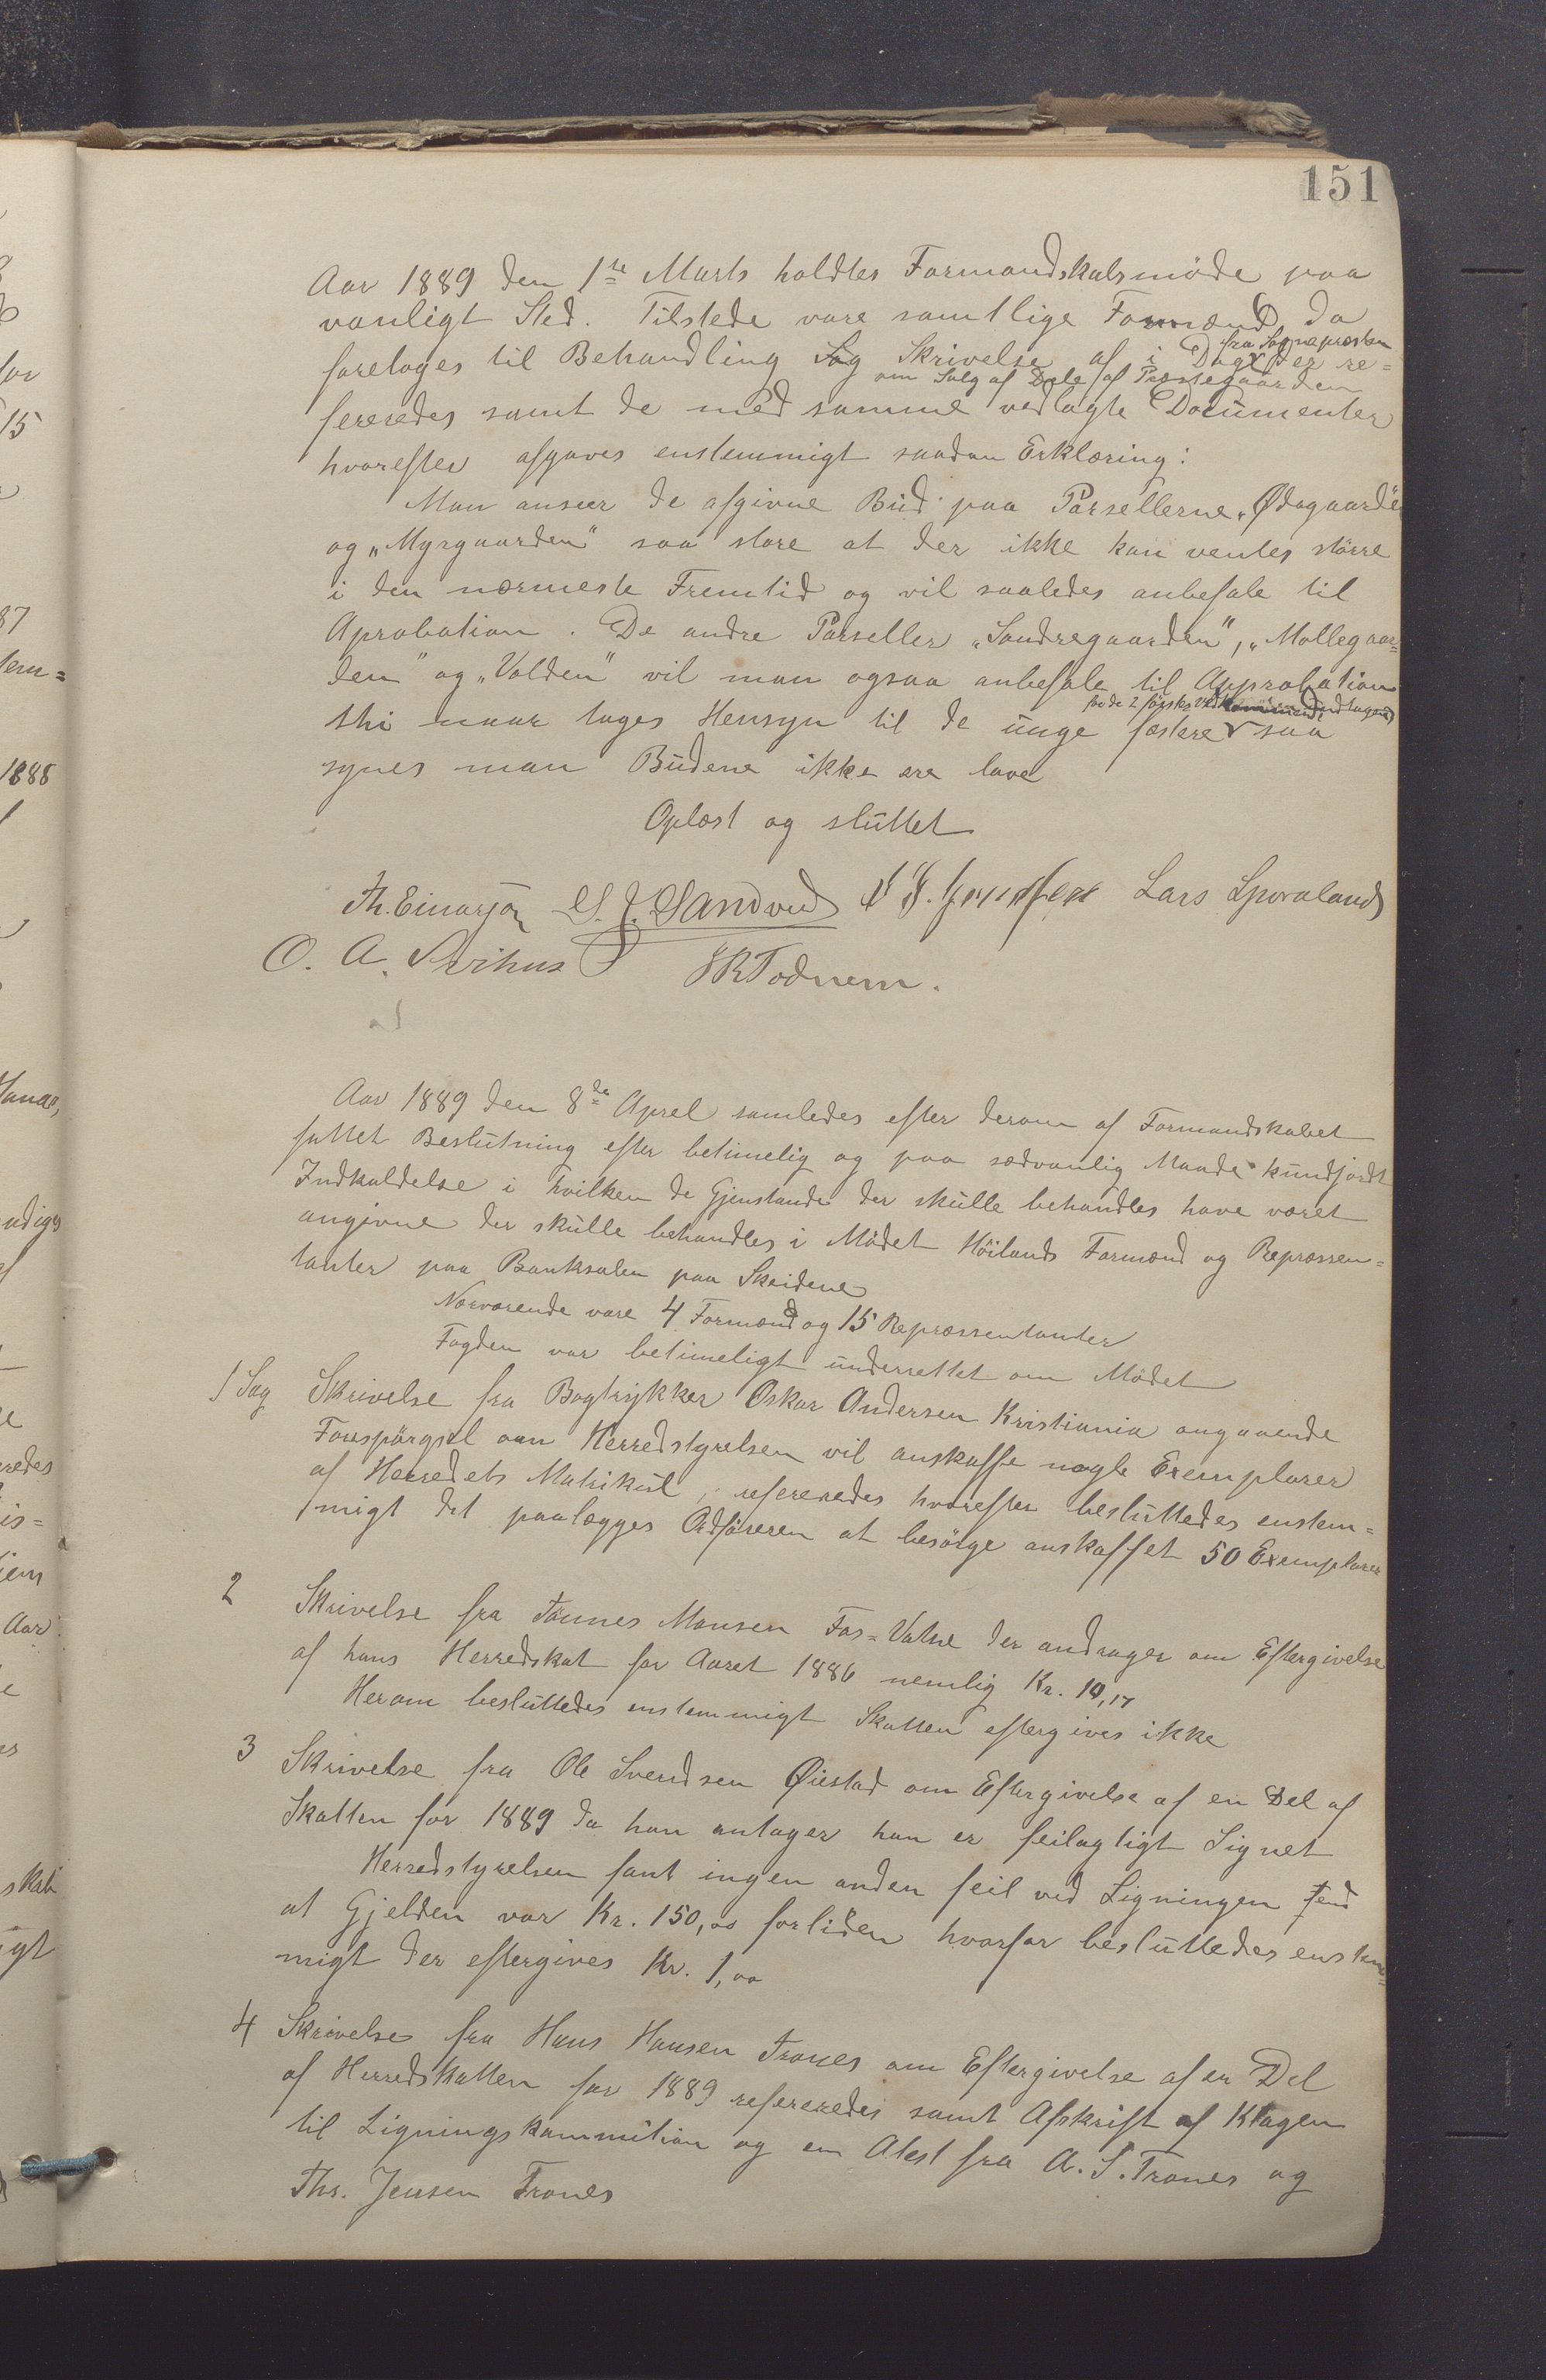 151
Aar 1889 den 1ste Marts holdtes Formandskabsmøde paa
vanligt Sted. Tilstede vare samtlige Formænd da
fra Sognepræsten
foretoges til Behandling Sag Skrivelse af i Dag der re=
om Salg af Dele af Præstegaarden
fereredes samt de med samme vedlagte Documenter
hvorefter afgaves enstemmigt saadan Erklæring:
Man anseer de afgivne Bud paa Parsellerne „Ødegaarden"
og „Myrgaarden" saa store at der ikke kan ventes större
i den nærmeste Fremtid og vil saaledes anbefale til
Aprobation. De andre Parseller „Sondregaarden", „Mollegaar=
den" og „Volden" vil man ogsaa anbefale til Approbation
for de 2 førstes
thi naar tages Hensyn til de unge fæstere saa
synes man Budene ikke ere lave
Oplæst og sluttet
Th. Einarsen S. J. Sandved Lars Sporaland
O. A. Svihus JRTodnem.
Aar 1889 den 8de Aprel samledes efter derom af Formandskabet
fattet Beslutning efter betimelig og paa sædvanlig Maade kundgjordt
Indkaldelse i hvilken de Gjenstande der skulle behandles have været
angivne der skulle behandles i Mödet Höilands Formænd og Repræssen=
tanter paa Banksalen paa Skeidene
Nærværende vare 4 Formænd og 15 Repræssentanter
Fogden var betimeligt underrettet om Mödet
1 Sag Skrivelse fra Bogtrykker Oskar Andersen Kristiania angaaende
Forespörgsel om Herredstyrelsen vil anskaffe nogle Exemplarer
af Herredets Matrikul, refereredes hvorefter besluttedes enstem=
migt det paalægges Ordföreren at besörge anskaffet 50 Exemplarer
2 Skrivelse fra Tönnes Monsen Fos=Vatne der andrager om Eftergivelse
af hans Herredskat for Aaret 1886 nemlig Kr. 10,17
Herom besluttedes enstemmigt Skatten eftergives ikke
3 Skrivelse fra Ole Svendsen Øiestad om Eftergivelse af en Del af
Skatten for 1889 da han antager han er feilagtigt Lignet
Herredstyrelsen fant ingen anden feil ved Ligningen end
at Gjelden var Kr. 150,00 forliden hvorfor besluttedes enstem=
migt der eftergives Kr. 1,00
4 Skrivelse fra Hans Hansen Trones om Eftergivelse af en Del
af Herredskatten for 1889 refereredes samt Afskrift af Klagen
til Ligningskommition og en Atest fra A. S. Trones og
Ths. Jensen Trones